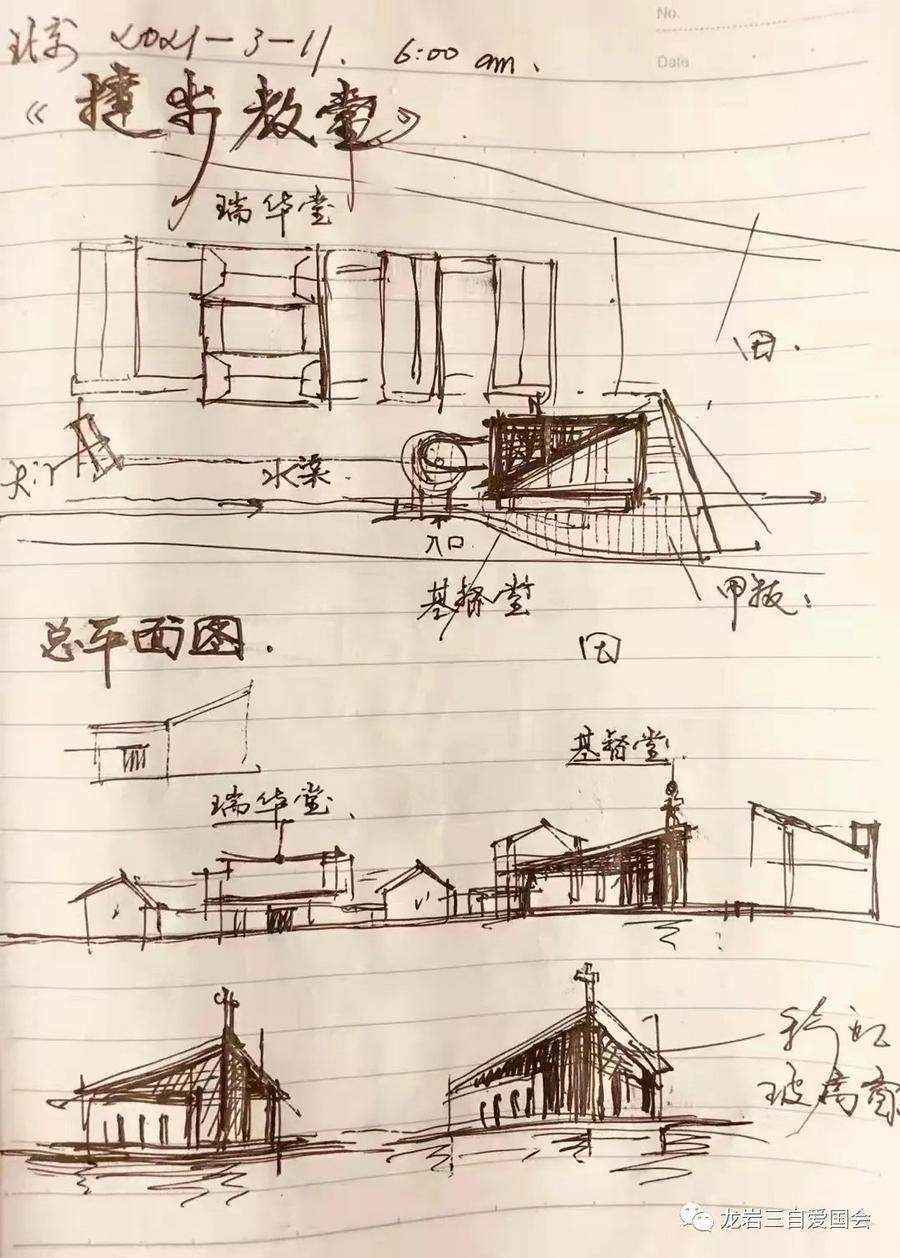 No.
Date
北京 2021-3-11. 6:00 am.
《捷步教堂》
瑞华堂
田.
大门
水渠.
入口
基督堂
甲板:
总平面图.
田
基督堂.
瑞华堂.
彩虹
玻璃窗
龙岩三自爱国会